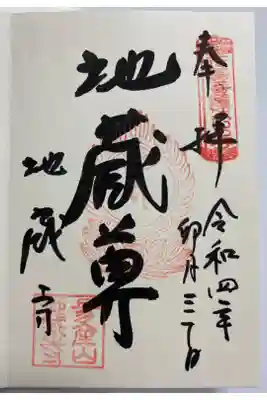 奉拝
令和四年
卯月三十日
地蔵尊
地蔵寺